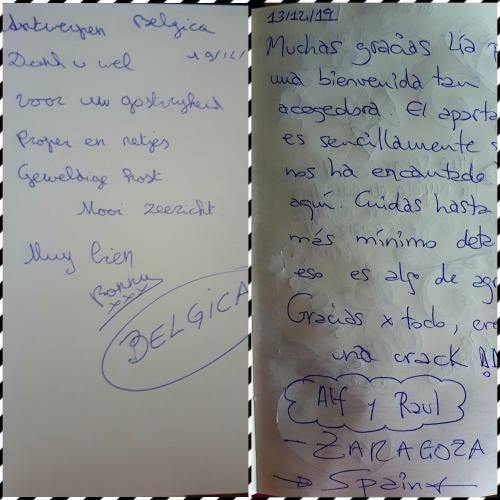 Antwerpen Belgica
Dank u wel 19/12/
voor uw gastvrijheid
Proper en netjes
Geweldige host.
Mooi zeezicht.
Muy bien
Bonny
xxx
BELGICA
13/12/19
Muchas gracias Lía
una bienvenida tan
acogedora. El aparta
es sencillamente
nos ha encantado
aquí. Cuidas hasta
más mínimo deta
eso es algo de ag
Gracias x todo, ere
una crack !!
Alf y Raul
- ZARAGOZA
Spain